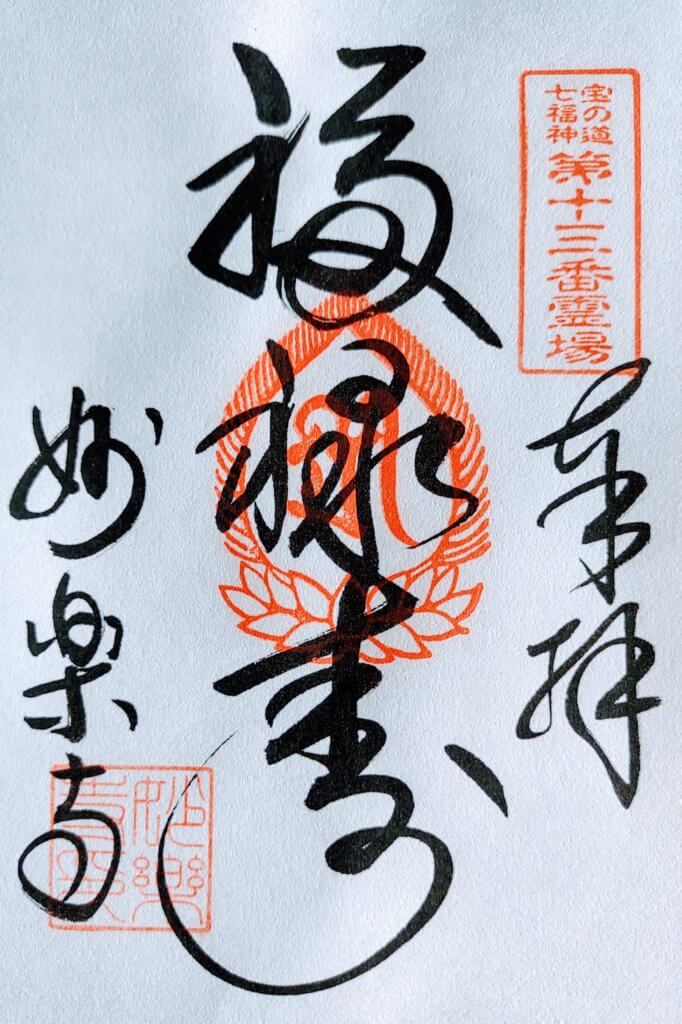 宝の道
七福神
第十三番霊場
奉拝
福禄寿
妙楽寺